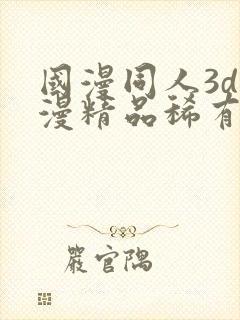 國漫同人3d
漫精品稀有
嚴官隅